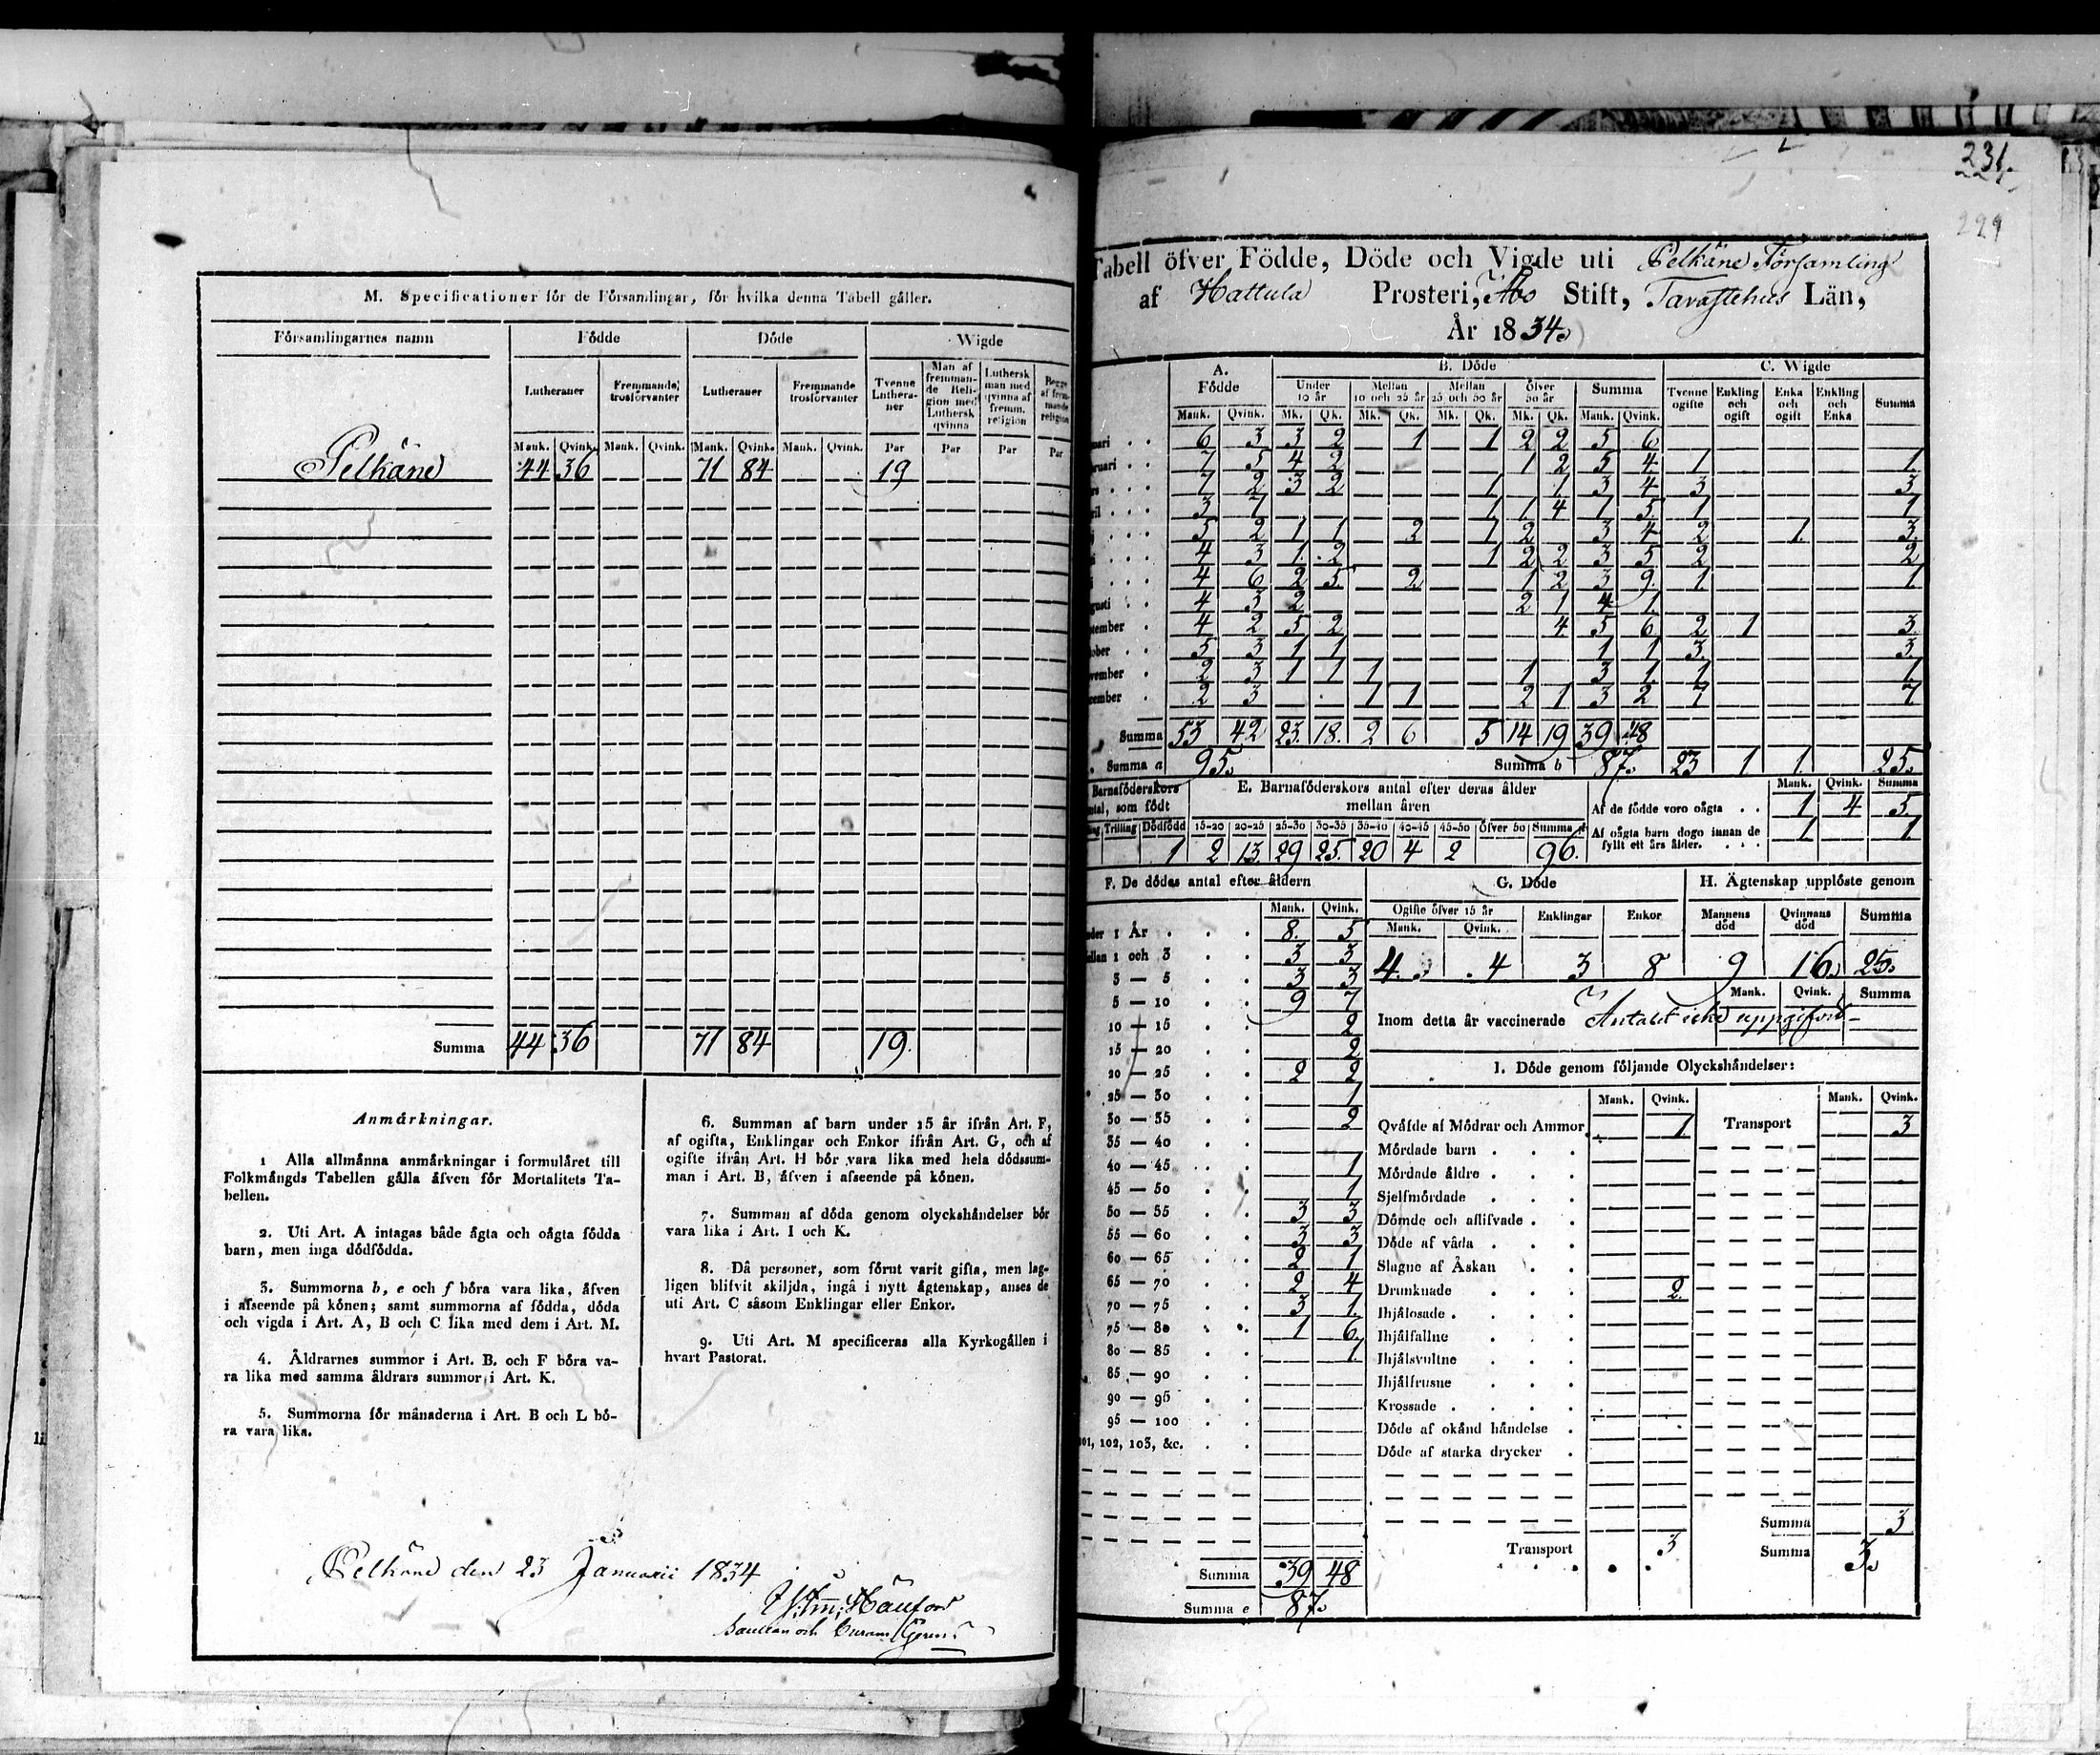 M. Specificationer för de Församlingar, för hvilka denna Tabell gäller.
Församlingarnes namn Födde Döde Wigde
Lutheraner Fremmande trosförvanter Lutheraner Fremmande trosförvanter Tvenne Lutheraner Man af fremmande Religion med Luthersk qvinna Luthersk man med qvinna af fremm. religion Begge af fremmande religion
Mank. Qvink. Mank. Qvink. Mank. Qvink. Mank. Qvink. Par Par Par Par
Pelkäne 44 36 71 84 19
Summa 44 36 71 84 19
Anmärkningar.
1 Alla allmänna anmärkningar i formuläret till
Folkmängds Tabellen gälla äfven för Mortalitets Ta-
bellen.
2. Uti Art. A intagas både ägta och oägta födda
barn, men inga dödfödda.
3. Summorna b, e och f böra vara lika, äfven
i afseende på könen; samt summorna af födda, döda
och vigda i Art. A, B och C lika med dem i Art. M.
4. Åldrarnes summor i Art. B. och F böra va-
ra lika med samma åldrars summor i Art. K.
5. Summorna för månaderna i Art. B och L bö-
ra vara lika.
6. Summan af barn under 15 år ifrån Art. F,
af ogifta, Enklingar och Enkor ifrån Art. G, och af
ogifte ifrån Art. H bör vara lika med hela dödssum-
man i Art. B, äfven i afseende på könen.
7. Summan af döda genom olyckshändelser bör
vara lika i Art. I och K.
8. Då personer, som förut varit gifta, men lag-
ligen blifvit skiljda, ingå i nytt ägtenskap, anses de
uti Art. C såsom Enklingar eller Enkor.
9. Uti Art. M specificeras alla Kyrkogällen i
hvart Pastorat.
Pelkäne den 23 Januarii 1834
231.
229
Tabell öfver Födde, Döde och Vigde uti Pelkäne Församling
af Hattula Prosteri, Åbo Stift, Tavastehus Län,
År 1834.
A. Födde B. Döde C. Wigde
Under 10 år Mellan 10 och 25 år Mellan 25 och 50 år Öfver 50 år Summa Tvenne ogifte Enkling och ogift Enka och ogift Enkling och Enka Summa
Mank. Qvink. Mk. Qk. Mk. Qk. Mk. Qk. Mk. Qk. Mank. Qvink.
uari 6 3 3 2 1 1 2 2 5 6
ruari 7 5 4 2 1 2 5 4 1 1
7 2 3 2 1 1 3 4 3 3
ril 3 7 1 1 4 1 5 1 1
5 2 1 1 2 1 2 3 4 2 1 3
4 3 1 2 1 2 2 3 5 2 2
4 6 2 5 2 1 2 3 9 1 1
gusti 4 3 2 2 1 4 1
tember 4 2 5 2 4 5 6 2 1 3
ober 5 3 1 1 1 1 3 3
vember 2 3 1 1 1 1 3 1 1 1
cember 2 3 1 1 2 1 3 2 7 7
Summa 53 42 23 18 2 6 5 14 19 39 48
Summa a 95. Summa b 87. 23 1 1 25.
Barnaföderskors
ntal, som födt
Trilling Dödfödd
1
E. Barnaföderskors antal efter deras ålder
mellan åren
15-20 20-25 25-30 30-35 35-40 40-45 45-50 Öfver 50 Summa d
2 13 29 25 20 4 2 96.
Mank. Qvink. Summa
Af de födde voro oägta . . 1 4 5
Af oägta barn dogo innan de
fyllt ett års ålder. . . . 1 1
F. De dödas antal efter åldern
Mank. Qvink.
nder 1 År 8 5
ellan 1 och 3 3 3
3 — 5 3 3
5 — 10 9 7
10 — 15 2
15 — 20 2
20 — 25 2 2
25 — 30 1
30 — 35 2
35 — 40
40 — 45 1
45 — 50 1
50 — 55 3 3
55 — 60 3 3
60 — 65 2 1
65 — 70 2 4
70 — 75 3 1
75 — 80 1 6
80 — 85 1
85 — 90
90 — 95
95 — 100
101, 102, 103, &c.
Summa 39 48
Summa e 87.
G. Döde
Ogifte öfver 15 år Enklingar Enkor
Mank. Qvink.
4 4 3 8
H. Ägtenskap upplöste genom
Mannens död Qvinnans död Summa
9 16 25.
Mank. Qvink. Summa
Inom detta år vaccinerade Antalet icke uppgifvit
I. Döde genom följande Olyckshändelser:
Mank. Qvink. Mank. Qvink.
Qväfde af Mödrar och Ammor 1 Transport 3
Mördade barn . . .
Mördade äldre . . .
Sjelfmördade . . .
Dömde och aflifvade . .
Döde af våda . . .
Slagne af Åskan . .
Drunknade . . . 2
Ihjälosade . . .
Ihjälfallne . . .
Ihjälsvultne . . .
Ihjälfrusne . . .
Krossade . . .
Döde af okänd händelse .
Döde af starka drycker .
Summa 3
Transport 3 Summa 3.